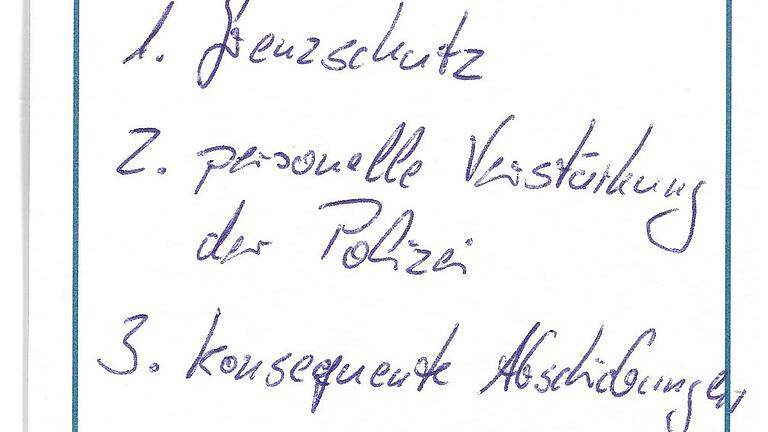 1. Grenzschutz
2. personelle Verstärkung
der Polizei
3. konsequente Abschibungen